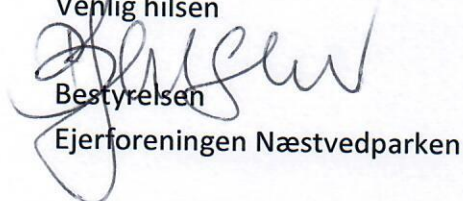 Venlig hilsen
Bestyrelsen
Ejerforeningen Næstvedparken